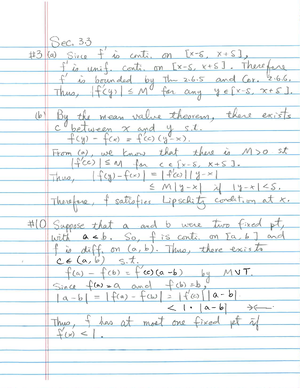 Sec. 3.3
#3 (a) Since f' is conti. on [x-δ, x+δ],
f' is unif. conti. on [x-δ, x+δ]. Therefore
f' is bounded by Th 2.6.5 and Cor. 2.6.6.
Thus, |f'(y)| ≤ M for any y∈[x-δ, x+δ].
(b) By the mean value theorem, there exists
c between x and y s.t.
f(y) - f(x) = f'(c)(y-x).
From (a), we know that there is M>0 st
|f'(c)| ≤ M for c∈[x-δ, x+δ].
Thus, |f(y)-f(x)| = |f'(c)||y-x|
≤ M|y-x| if |y-x|<δ.
Therefore, f satisfies Lipschitz condition at x.
#10 Suppose that a and b were two fixed pt,
with a<b. So, f is conti. on [a,b] and
f is diff. on (a,b). Thus, there exists
c∈(a,b) s.t.
f(a) - f(b) = f'(c)(a-b) by MVT.
Since f(a)=a and f(b)=b,
|a-b| = |f(a)-f(b)| = |f'(c)||a-b|
< 1·|a-b| →←
Thus, f has at most one fixed pt if
f'(x) < 1.